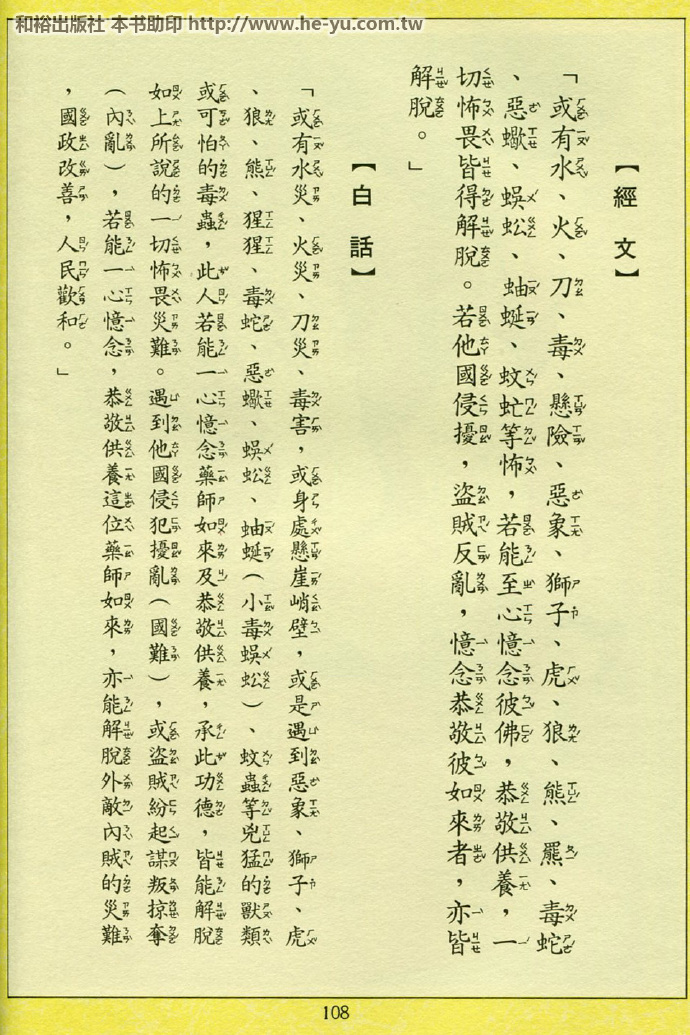 和裕出版社 本书助印 http://www.he-yu.com.tw
【經文】
「或有水、火、刀、毒、懸險、惡象、獅子、虎、狼、熊、羆、毒蛇
、惡蠍、蜈蚣、蚰蜒、蚊虻等怖，若能至心憶念彼佛，恭敬供養，一
切怖畏皆得解脫。若他國侵擾，盜賊反亂，憶念恭敬彼如來者，亦皆
解脫。」
【白話】
「或有水災、火災、刀災、毒害，或身處懸崖峭壁，或是遇到惡象、獅子、虎
、狼、熊、猩猩、毒蛇、惡蠍、蜈蚣、蚰蜒（小毒蜈蚣）、蚊蟲等兇猛的獸類
或可怕的毒蟲，此人若能一心憶念藥師如來及恭敬供養，承此功德，皆能解脫
如上所說的一切怖畏災難。遇到他國侵犯擾亂（國難），或盜賊紛起謀叛掠奪
（內亂），若能一心憶念，恭敬供養這位藥師如來，亦能解脫外敵內賊的災難
，國政改善，人民歡和。」
108